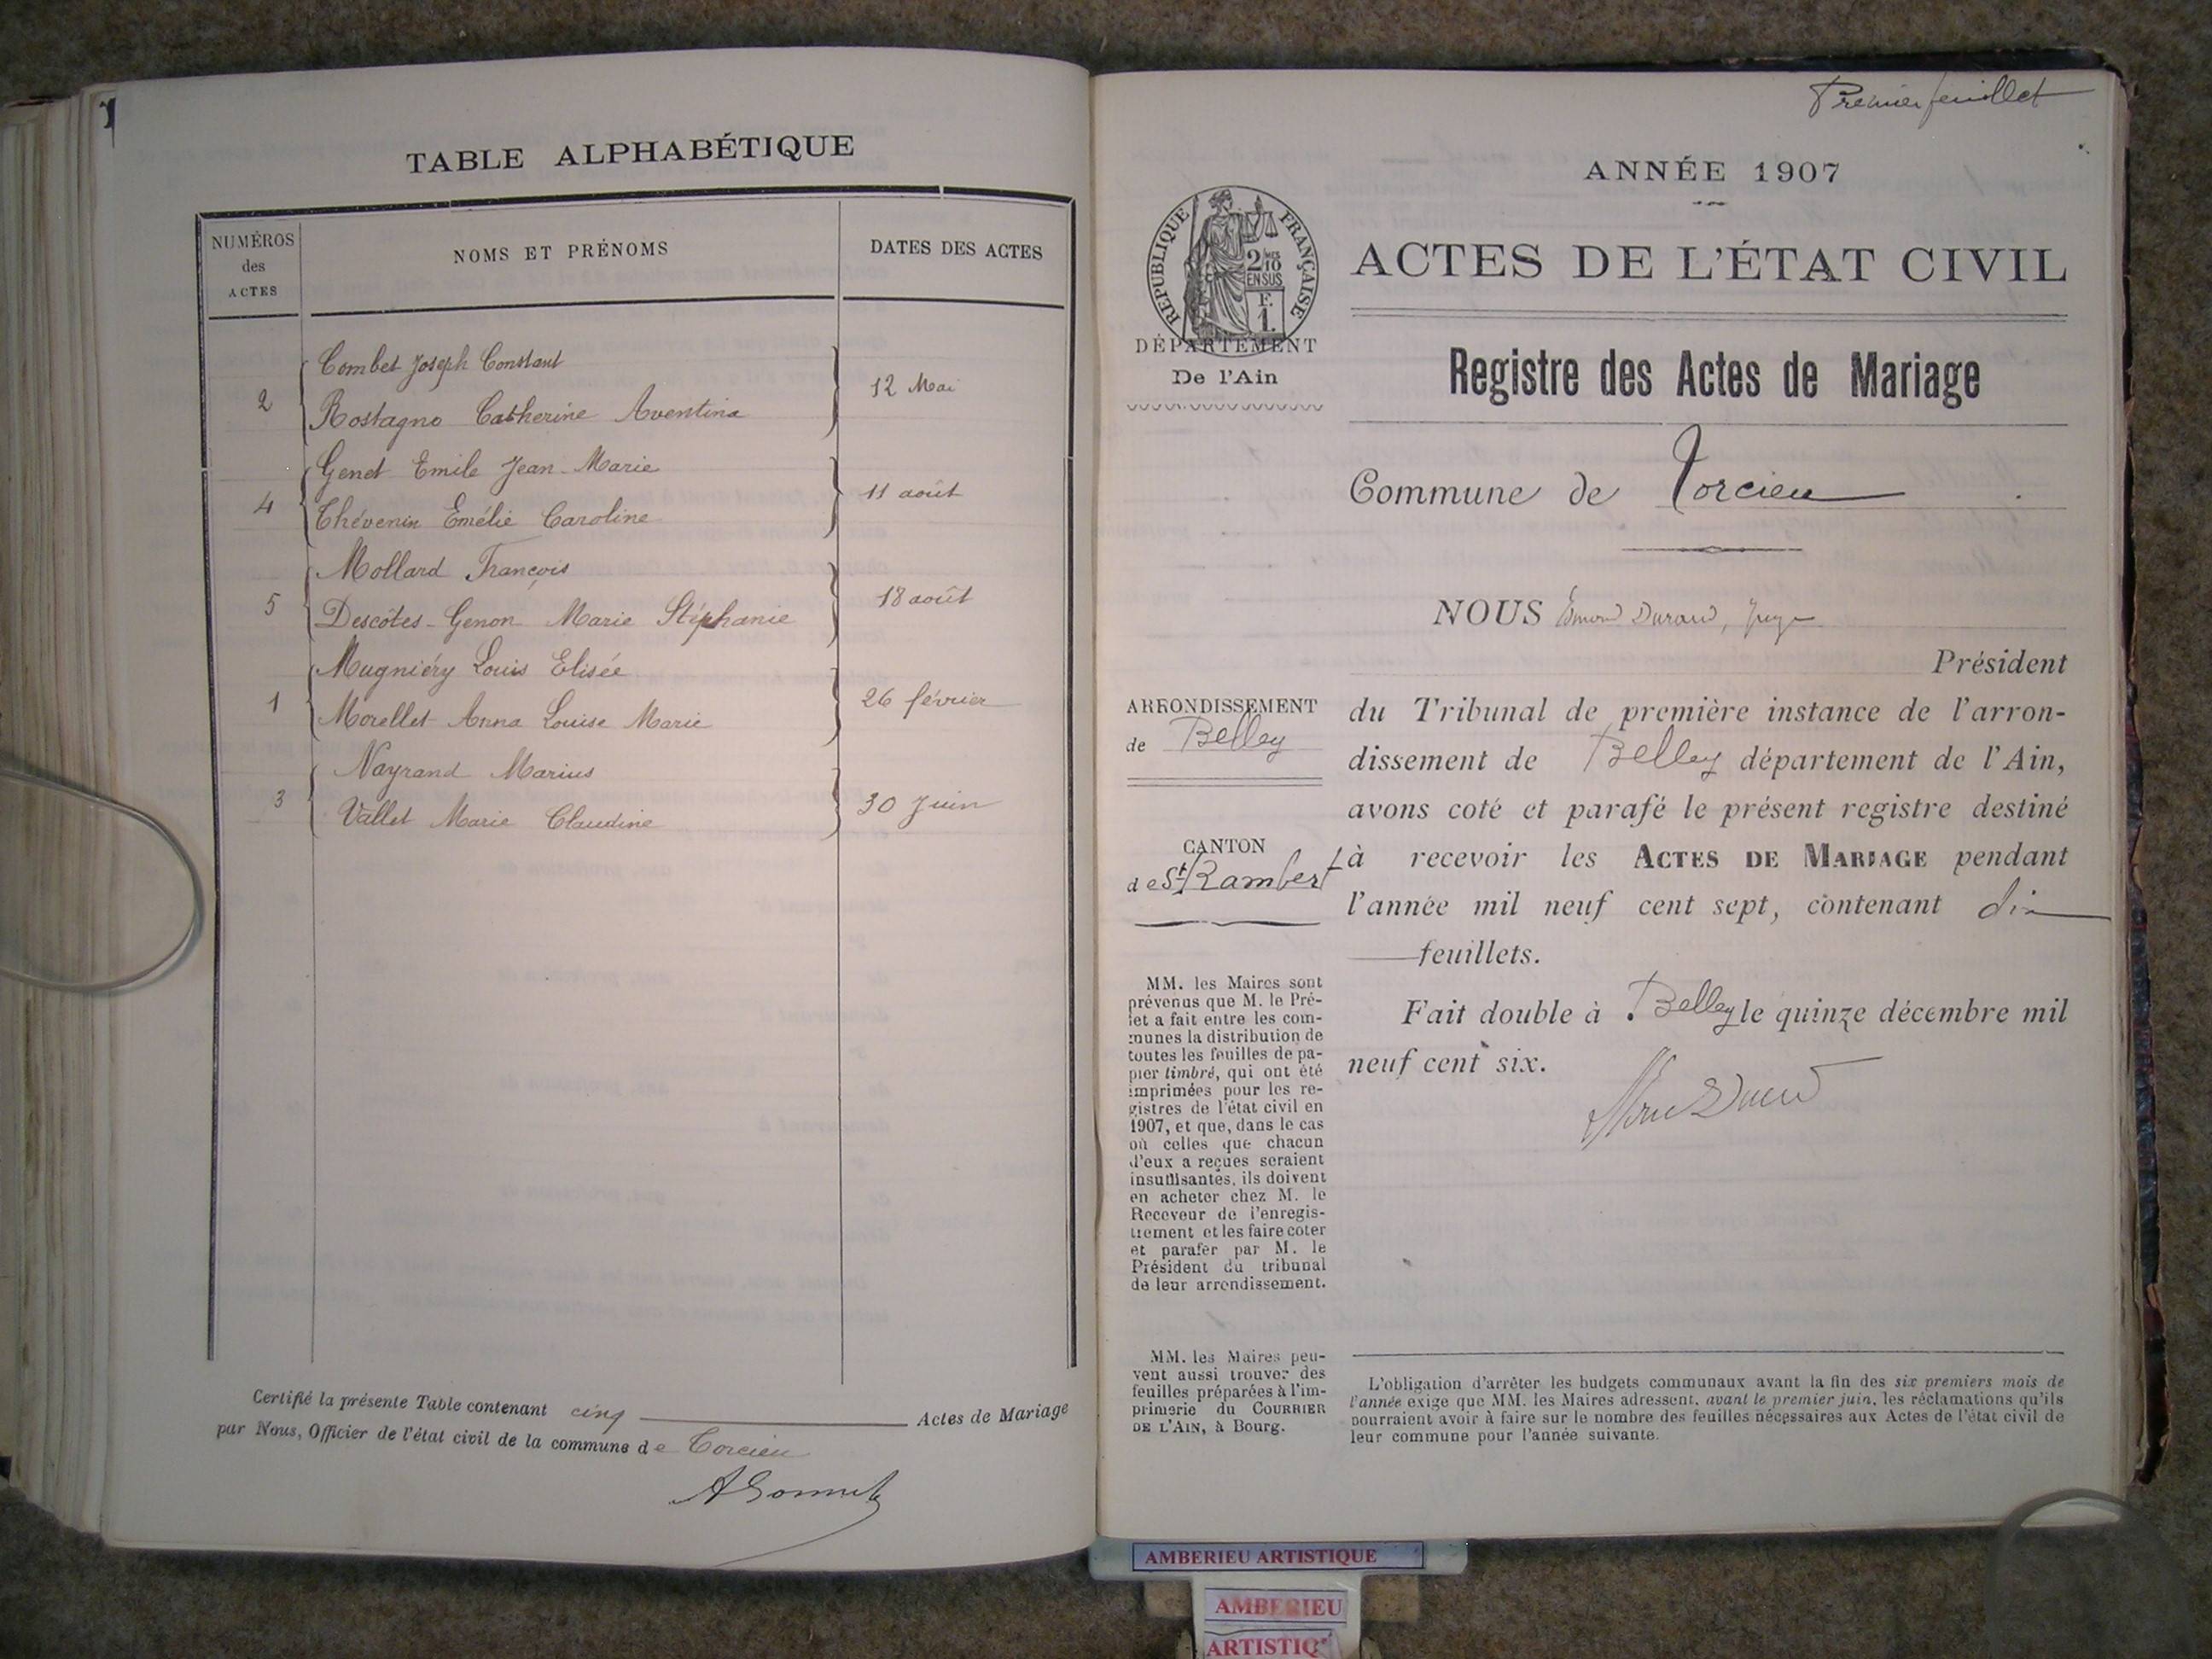 TABLE ALPHABÉTIQUE
NUMÉROS
des
ACTES
NOMS ET PRÉNOMS
DATES DES ACTES
Combet Joseph Constant
2
12 Mai
Rostagno Catherine Aventina
Genet Emile Jean-Marie
4
11 août
Thévenin Emélie Caroline
Mollard François
5
18 août
Descôtes-Genon Marie Stéphanie
Mugniéry Louis Elisée
1
26 février
Morellet Anna Louise Marie
Nayrand Marius
3
30 Juin
Vallet Marie Claudine
Certifié la présente Table contenant cinq Actes de Mariage
par Nous, Officier de l'état civil de la commune de Torcieu
Premier feuillet
ANNÉE 1907
RÉPUBLIQUE FRANÇAISE
2/10
EN SUS
F.
1.
DÉPARTEMENT
De l'Ain
ACTES DE L'ÉTAT CIVIL
Registre des Actes de Mariage
Commune de Torcieu
NOUS Durand, Juge
Président
du Tribunal de première instance de l'arron-
dissement de Belley département de l'Ain,
avons coté et parafé le présent registre destiné
à recevoir les ACTES DE MARIAGE pendant
l'année mil neuf cent sept, contenant dix
feuillets.
Fait double à Belley le quinze décembre mil
neuf cent six.
ARRONDISSEMENT
de Belley
CANTON
de St Rambert
MM. les Maires sont
prévenus que M. le Pré-
fet a fait entre les com-
munes la distribution de
toutes les feuilles de pa-
pier timbré, qui ont été
imprimées pour les re-
gistres de l'état civil en
1907, et que, dans le cas
où celles que chacun
d'eux a reçues seraient
insuffisantes, ils doivent
en acheter chez M. le
Receveur de l'enregis-
trement et les faire coter
et parafer par M. le
Président du tribunal
de leur arrondissement.
MM. les Maires peu-
vent aussi trouver des
feuilles préparées à l'im-
primerie du COURRIER
DE L'AIN, à Bourg.
L'obligation d'arrêter les budgets communaux avant la fin des six premiers mois de
l'année exige que MM. les Maires adressent, avant le premier juin, les réclamations qu'ils
pourraient avoir à faire sur le nombre des feuilles nécessaires aux Actes de l'état civil de
leur commune pour l'année suivante.
AMBERIEU ARTISTIQUE
AMBERIEU
ARTISTIQ